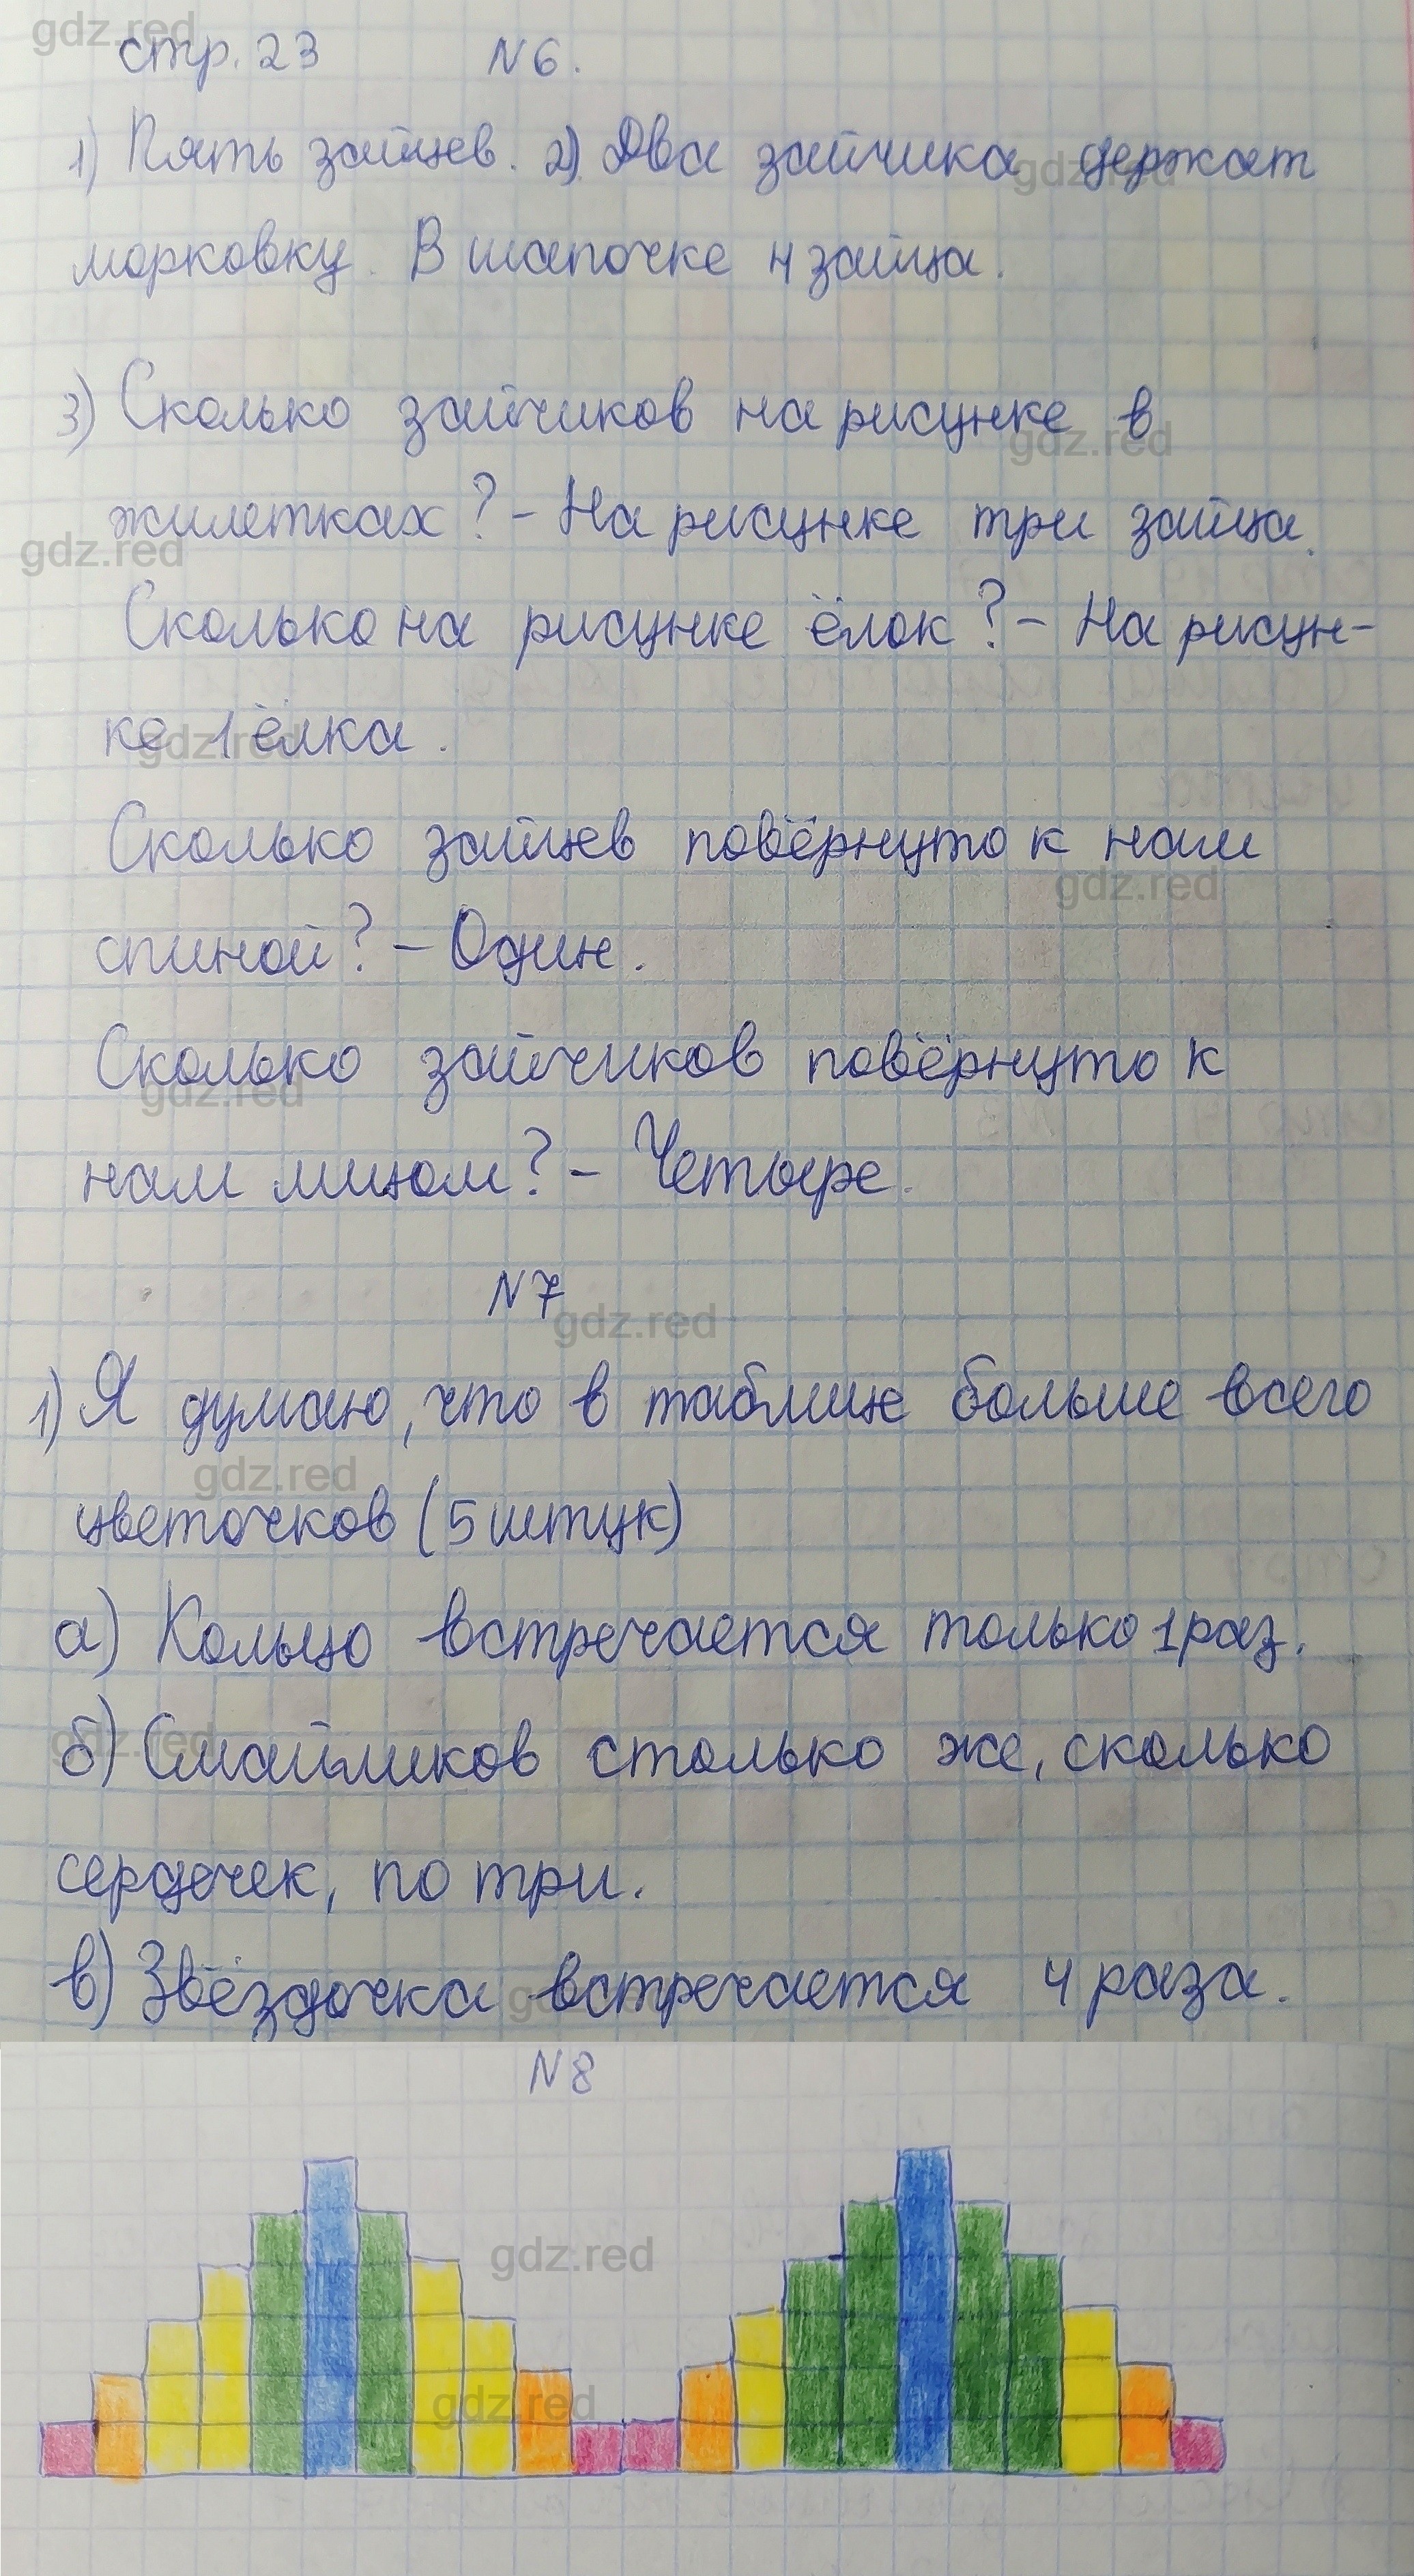 стр. 23 N6.
1) Пять зайцев. 2) Два зайчика держат
морковку. В шапочке 4 зайца.
3) Сколько зайчиков на рисунке в
жилетках? - На рисунке три зайца.
Сколько на рисунке ёлок? - На рисун-
ке 1 ёлка.
Сколько зайцев повёрнуто к нам
спиной? - Один.
Сколько зайчиков повёрнуто к
нам лицом? - Четыре.
N7
1) Я думаю, что в таблице больше всего
цветочков (5 штук)
а) Кольцо встречается только 1 раз.
б) Смайликов столько же, сколько
сердечек, по три.
в) Звёздочка встречается 4 раза.
N8
gdz.red
gdz.red
gdz.red
gdz.red
gdz.red
gdz.red
gdz.red
gdz.red
gdz.red
gdz.red
gdz.red
gdz.red
gdz.red